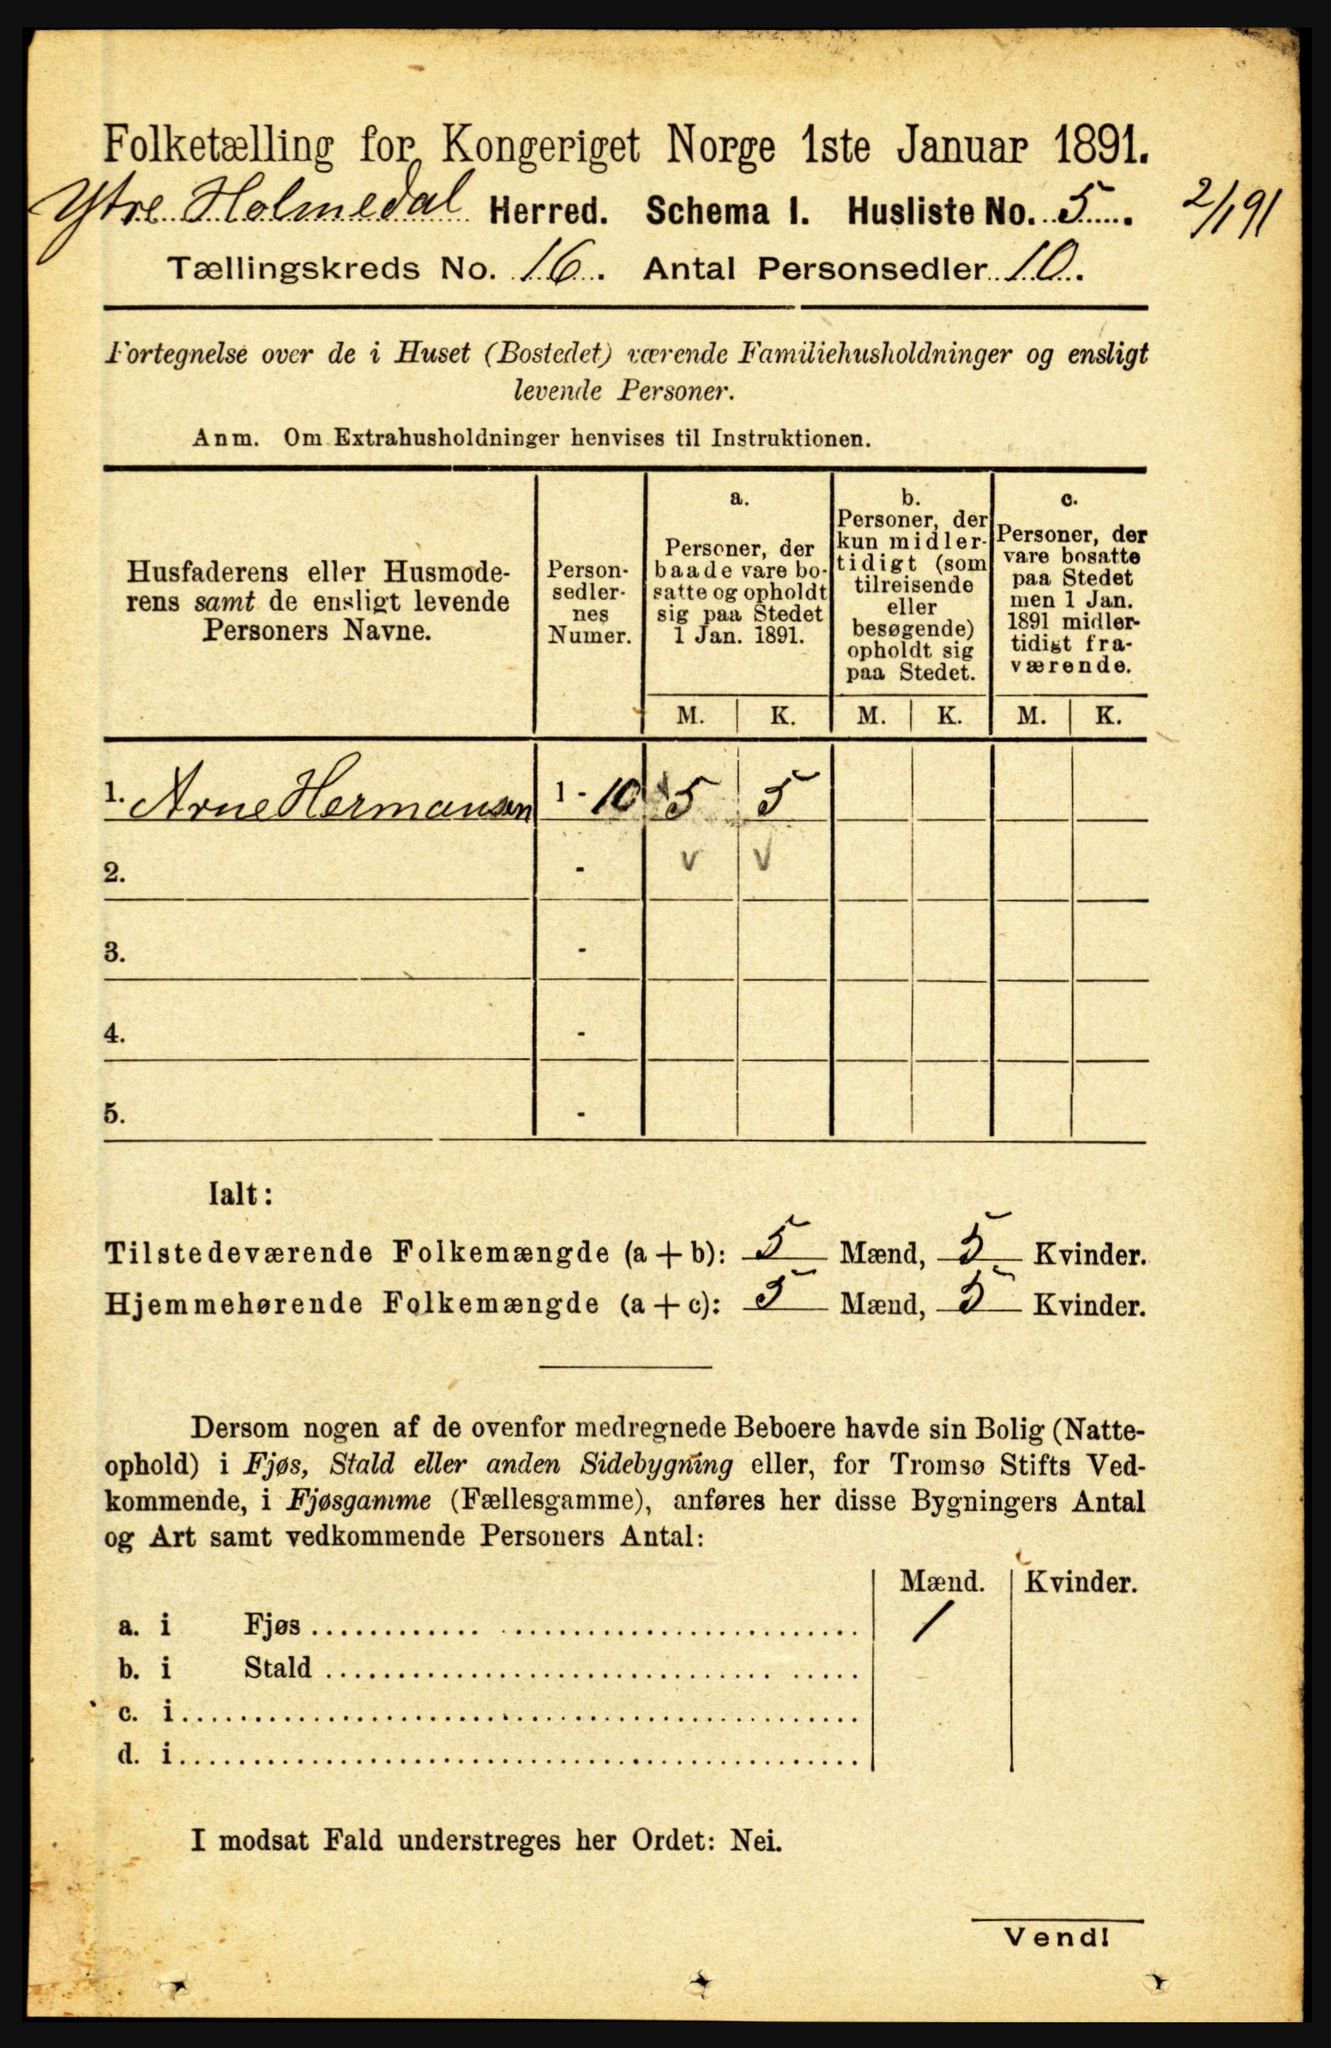 Folketælling for Kongeriget Norge 1ste Januar 1891.
Ytre Holmedal Herred. Schema I. Husliste No. 5. 2/1 91
Tællingskreds No. 16. Antal Personsedler 10.
Fortegnelse over de i Huset (Bostedet) værende Familiehusholdninger og ensligt
levende Personer.
Anm. Om Extrahusholdninger henvises til Instruktionen.
Husfaderens eller Husmode-
rens samt de ensligt levende
Personers Navne.
Person-
sedler-
nes
Numer.
a.
Personer, der
baade vare bo-
satte og opholdt
sig paa Stedet
1 Jan. 1891.
b.
Personer, der
kun midler-
tidigt (som
tilreisende
eller
besøgende)
opholdt sig
paa Stedet.
c.
Personer, der
vare bosatte
paa Stedet
men 1 Jan.
1891 midler-
tidigt fra-
værende.
M. K. M. K. M. K.
1. Arne Hermansen 1 - 10 5 5
2. - v v
3. -
4. -
5. -
Ialt:
Tilstedeværende Folkemængde (a + b): 5 Mænd, 5 Kvinder.
Hjemmehørende Folkemængde (a + c): 5 Mænd, 5 Kvinder.
Dersom nogen af de ovenfor medregnede Beboere havde sin Bolig (Natte-
ophold) i Fjøs, Stald eller anden Sidebygning eller, for Tromsø Stifts Ved-
kommende, i Fjøsgamme (Fællesgamme), anføres her disse Bygningers Antal
og Art samt vedkommende Personers Antal:
Mænd. Kvinder.
a. i Fjøs 1
b. i Stald
c. i
d. i
I modsat Fald understreges her Ordet: Nei.
Vend!